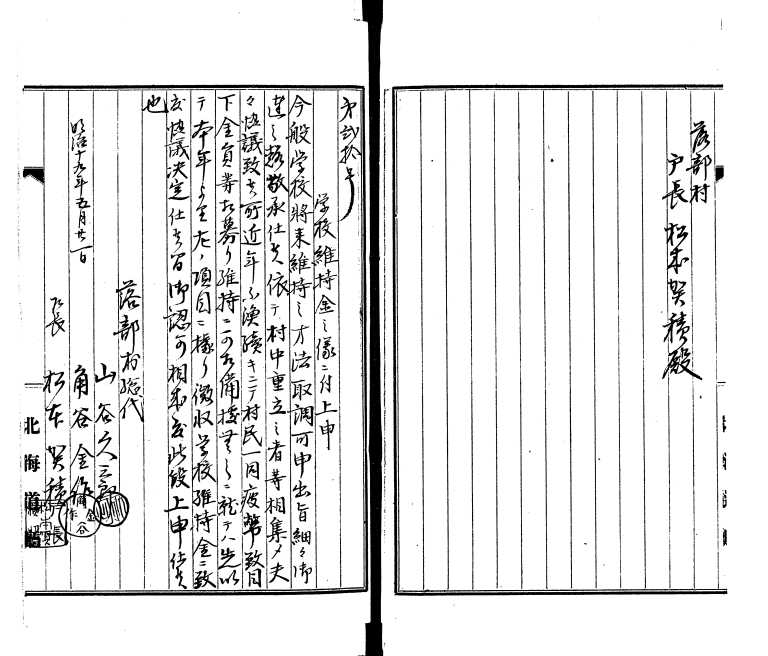 落部村
戸長 松本賀積殿
第弐拾号
学校維持金之儀ニ付上申
今般学校将来維持之方法取調可申出旨細々御
達之趣敬承仕候依テ村中重立之者等相集メ夫
々協議致候所近年不漁続キニテ村民一同疲弊致目
下金員等相募リ維持ニ可相備様無之ニ就テハ先以
テ本年ヨリ左ノ項目ニ據リ徴収学校維持金ニ致
度協議決定仕候間御認可相成度此段上申仕候
也
明治十九年五月廿一日
落部村総代
山谷久三郎
角谷金作
戸長 松本賀積
北海道